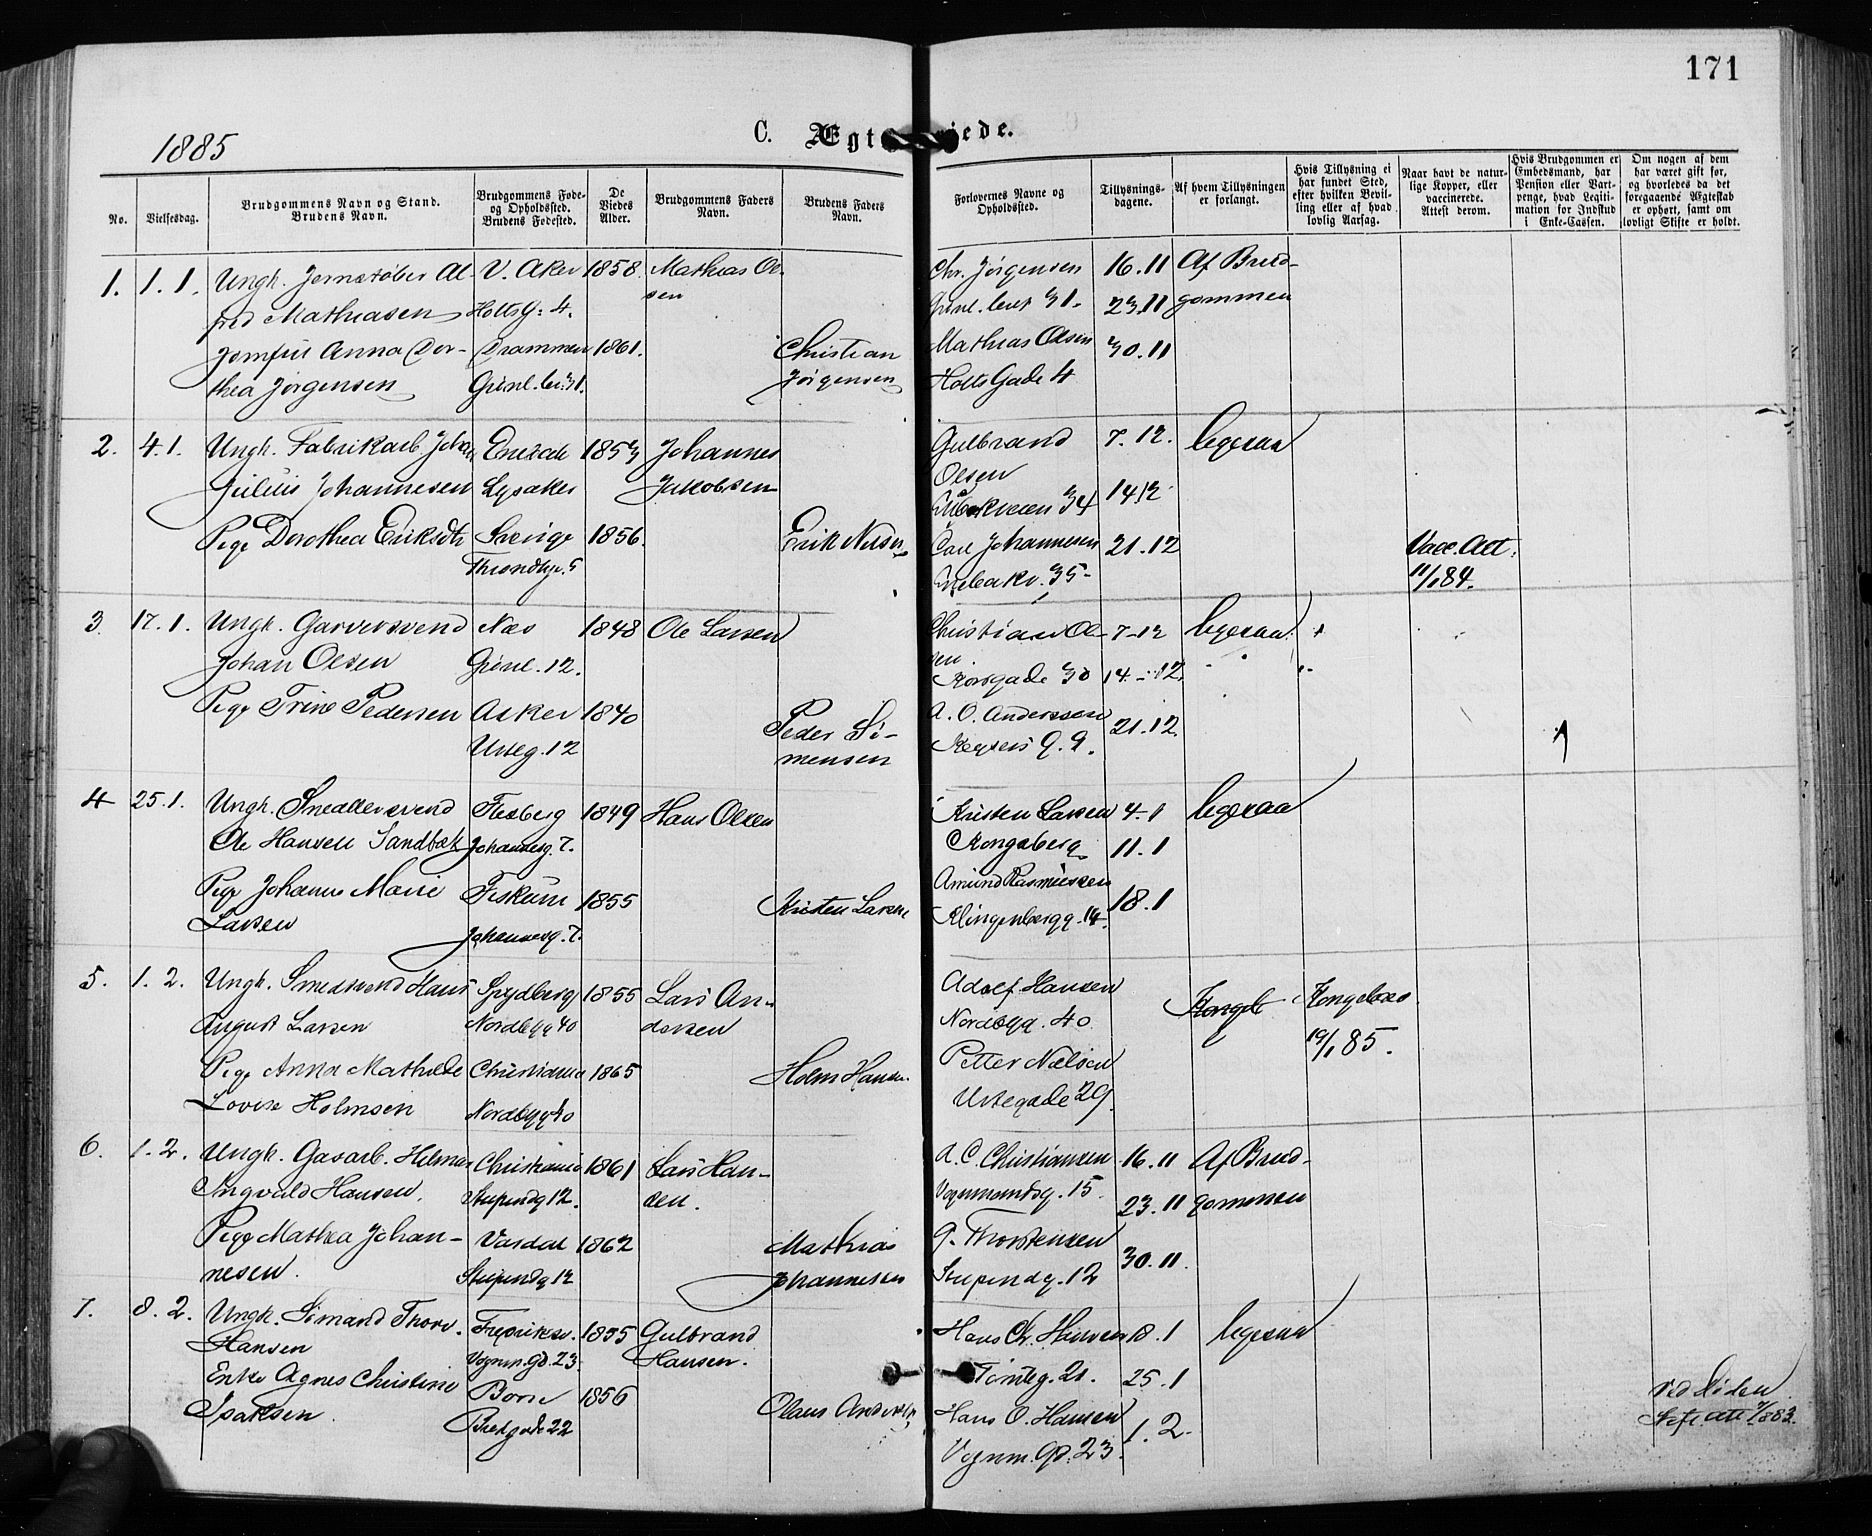 171
1885
C. Ægt
iede.
No.
Vielsesdag.
Brudgommens Navn og Stand.
Brudens Navn.
Brudgommens Føde-
og Opholdssted.
Brudens Fødested.
De
Viedes
Alder.
Brudgommens Faders
Navn.
Brudens Faders
Navn.
Forlovernes Navne og
Opholdssted.
Tillysnings-
dagene.
Af hvem Tillysningen
er forlangt.
Hvis Tillysning ei
har fundet Sted,
efter hvilken Bevil-
ling eller af hvad
lovlig Aarsag.
Naar havt de natur-
lige Kopper, eller
vaccinerede.
Attest derom.
Hvis Brudgommen er
Embedsmand, har
Pension eller Vart-
penge, hvad Legiti-
mation for Indskud
i Enke-Cassen.
Om nogen af dem
har været gift før,
og hvorledes da det
foregaaende Ægteskab
er ophørt, samt om
lovligt Skifte er holdt.
1. 1.1. Ungk. Jernstøber Al V. Aker 1858. Mathias Ol- Chr. Jørgensen 16.11 Af Brud-
fred Mathiasen Holtsg: 4. sen Grønl. leret 31. 23.11 gommen
Jomfru Anna Dor- Drammen 1861. Christian Mathias Olsen 30.11
thea Jørgensen Grønl. ler. 31. Jørgensen Holts Gade 4
2. 4.1. Ungk. Fabrikarb. Johan Johannes Gulbrand 7.12. ligesaa
Julius Johannesen Lysaker 1853 Jakobsen Olsen
34 14.12
Pige Dorothea Eriksdtr Sverige 1856. Erik Carl Johannesen 21.12 Vacc. Att.
Throndhj. 5 35 11/1 84.
3. 17.1. Ungk. Garversvend Næs 1848 Ole Larsen Christian Ol- 7-12 ligesaa
Johan Olsen Grønl. 12. sen.
Korsgade 30 14.-12.
Pige Trine Pedersen Asker 1840 Peder Si- A. O. Anderssen 21.12
Urteg. 12 mensen Keysers G. 9.
4 25.1. Ungk. Snedkersvend Flesberg 1849 Hans Olsen Kristen Larsen 4-1 ligesaa
Ole Hansen Sandbæk Johannesg. 7. Kongsberg 11.1
Pige Johanne Marie Fiskum 1855 Kristen Larsen Amund Rasmussen 18.1
Larsen Johannesg. 7. Klingenbergg. 14.
5. 1.2. Ungk. Smedsvend Hans Spydberg 1855 Lars An- Adolf Hansen Kongeb Kongebrev
August Larsen Nordbyg 40 dersen Nordbyg. 40 19/1 85.
Pige Anna Mathilde Christiania 1865 Holm Hansen Petter Nielsen
Lovise Holmsen Nordbyg 40 Urtegade 29.
6. 1.2. Ungk. Gasarb. Helmer Christiania 1861 Lars Han- A. C. Christiansen 16.11 Af Brud-
Ingvald Hansen. Stupendg 12. sen. Vognmandsg. 15. 23.11 gommen
Pige Mathea Johan- Vardal 1862 Mathias G. Thorstensen 30.11.
nesen. Stupendg 12 Johannesen Stupendg. 12
7. 8.2. Ungk. Simand Thorv. Fredriksv. 1855 Gulbrand Hans Chr. Hansen 18.1 ligesaa
Hansen Vognm. Gd. 23. Hansen. Tomteg. 21. 25.1
Enke Agnes Christine Borre 1856 Olaus Hans O. Hansen 1.2 ved Døden
Isaksen. Bredgade 22 Vognm. Gd. 23. Skifte Att. 1883.